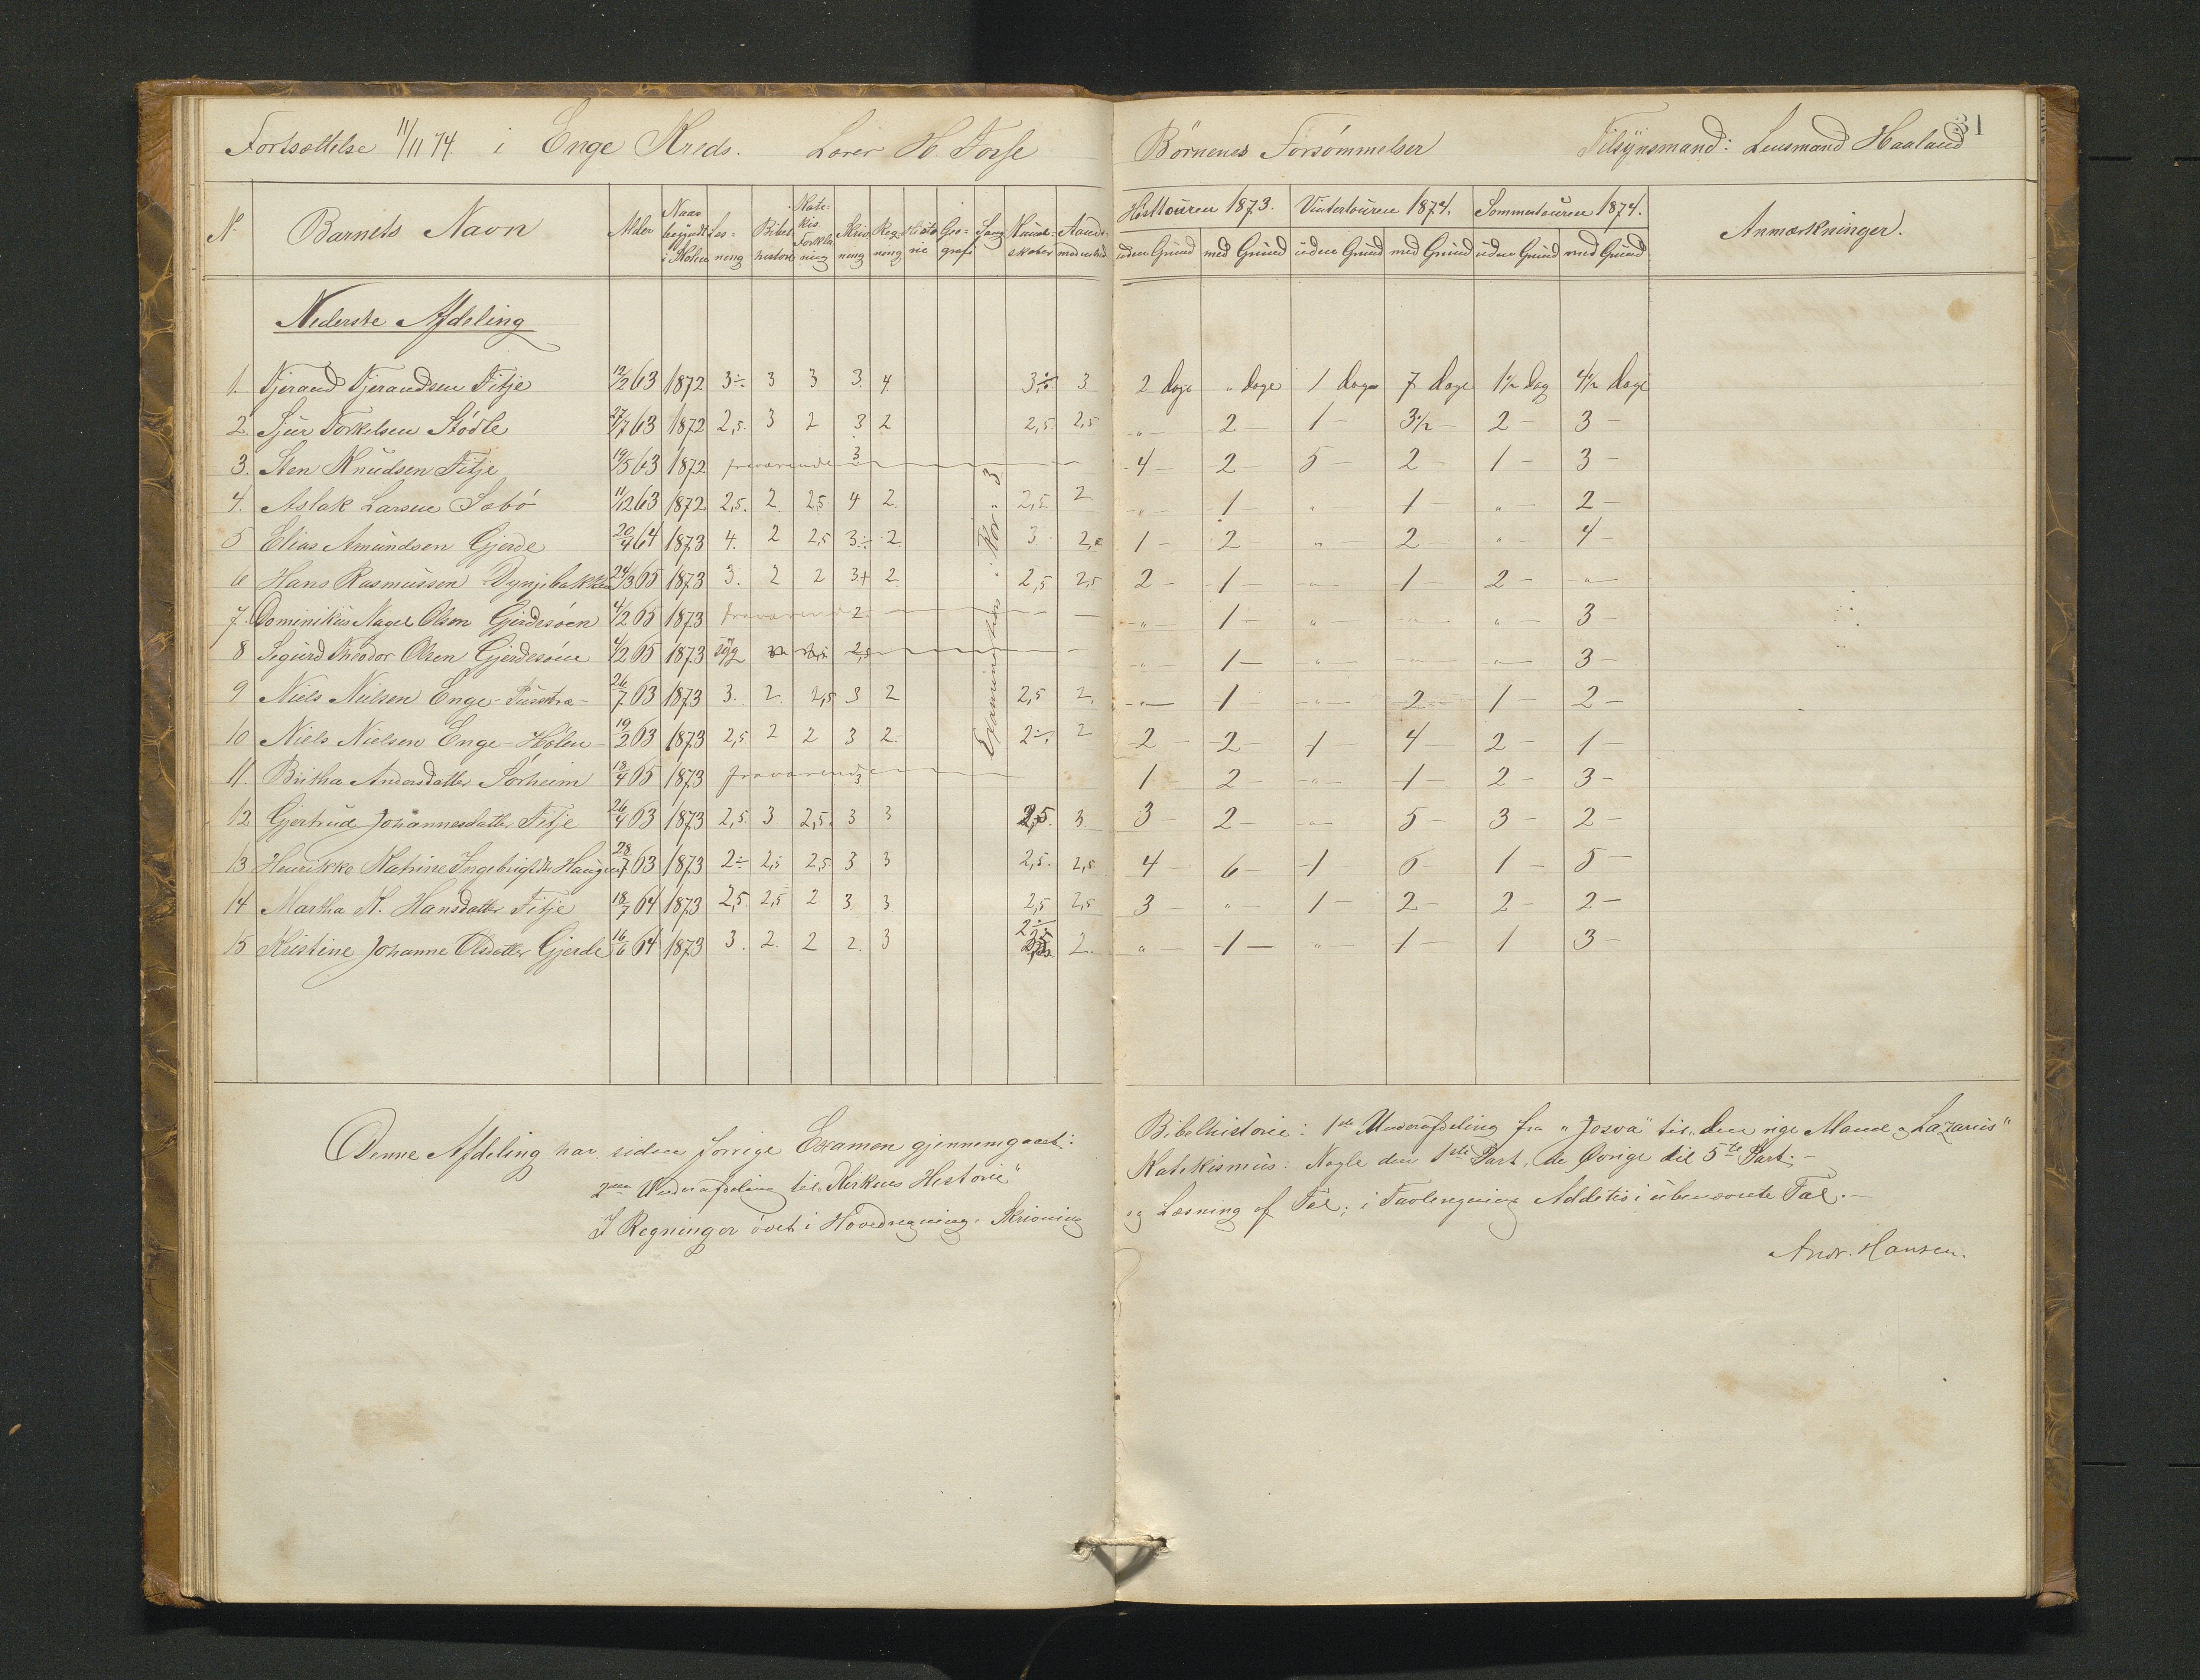 Fortsættelse 11/11 74. i Enge Kreds. Lærer H. Torse
Nº Barnets Navn Alder Naar begyndt i Skolen Læsning Bibelhistorie Katekis. Forklaring Skrivning Regning Historie Geografi Sang Kundskaber Aandsmodenhed
Nederste Afdeling
1. Tjerand Tjerandsen Fitje 12/2 63 1872 3÷ 3 3 3. 4 3÷ 3
2. Sjur Torkelsen Stødle 27/7 63 1872 2,5. 3 2 3 2 2,5. 2,5
3. Sten Knudsen Fitje 19/5 63 1872 fraværende 3
4. Aslak Larsen Sæbø 11/12 63 1872 2,5. 2. 2,5 4 2. 2,5 2.
5 Elias Amundsen Gjerde 20/4 64 1873 4. 2 2,5 3÷ 2 3
6 Hans Rasmussen Dynjebakken 24/3 65 1873 3. 2 2 3+ 2. 2,5 2,5
7. Dominikus Nagel Olsen Gjerdesøen 4/2 65 1873 fraværende 2
8 Sigurd Theodor Olsen Gjerdesøen 4/2 65 1873 syg 2,5
9 Niels Nielsen Enge- 26/7 63 1873 3. 2. 2,5 3 2 2,5 2.
10 Niels Nielsen Enge-Hølen- 19/2 63 1873 2,5 2 2 3 2. 2÷ 2
11. Britha Andersdatter Sørheim 18/4 65 1873 fraværende 3
12 Gjertrud Johannesdatter Fitje 26/4 63 1873 2,5. 3 2,5. 3 3 2,5. 3
13 Henrikke Katrine Ingebrigtsdtr Haugen 28/7 63 1873 2÷ 2,5 2,5 3 3 2,5. 2,5
14 Martha K. Hansdatter Fitje 18/7 64 1873 2,5 2,5 2 3. 3 2,5 2,5
15 Kristine Johanne Olsdatter Gjerde 16/6 64 1873 3. 2. 2 2. 3 2÷ 2.
Examination i Kor: 3.
Denne Afdeling har siden forrige Examen gjennemgaaet:
2den Underafdeling til "Kirkens Historie"
I Regning er øvet i Hovedregning, Skrivning
31
Børnenes Forsømmelser Tilsynsmand: Lensmand Haaland
Høsttouren 1873. Vintertouren 1874. Sommertouren 1874. Anmærkninger.
uden Grund med Grund uden Grund med Grund uden Grund med Grund
2 dage " dage 1 dage 7 dage 1½ dag 4½ dage
" — 2 — 1 — 3½ — 2 — 3 —
4 — 2 — 5 — 2 — 1 — 3 —
" — 1 " 1 — " — 2 —
1 — 2 — " 2 — " — 4 —
2 — 1 — " — 1 — 2 — " —
" — 1 — " — " — " — 3 —
" 1 — " — " — " — 3 —
" — 1 — " — 2 — 1 — 2 —
2 — 2 — 1 — 4 — 2 — 1 —
1 — 2 — " — 1 — 2 — 3 —
3 — 2 — " — 5 — 3 — 2 —
4 — 6 — 1 6 — 1 — 5 —
3 — " — 1 — 2 — 2 — 2 —
" — 1 — " 1 — 1 3 —
Bibelhistorie: 1ste Underafdeling fra "Josva" til "den rige Mand og Lazarus"
Katekismus: Nogle den 1ste Part, de Øvrige til 5te Part. —
og Læsning af Tal; i Tavleregning Addition i ubenævnte Tal. —
Andr. Hansen.